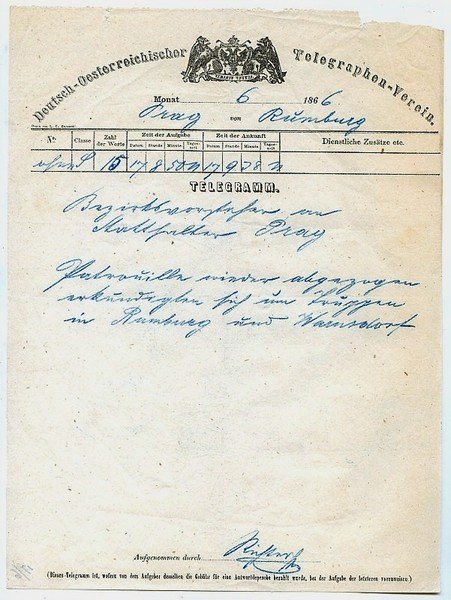 Deutsch-Oesterreichischer Telegraphen-Verein.
Monat 6 1866
Prag von Rumburg
No. Classe Zahl der Worte Zeit der Aufgabe Zeit der Ankunft Dienstliche Zusätze etc.
Datum Stunde Minute Tageszeit Datum Stunde Minute Tageszeit
ohne S 15 17 8 50 N 17 9 38 N
TELEGRAMM.
Bezirksvorsteher an
Statthalter Prag
Patrouille wieder abgezogen
erkundigten sich um Truppen
in Rumburg und Warnsdorf
Aufgenommen durch
(Dieses Telegramm ist, wofern von dem Aufgeber desselben die Gebühr für eine Antwortdepesche bezahlt wurde, bei der Aufgabe der letzteren vorzuweisen.)